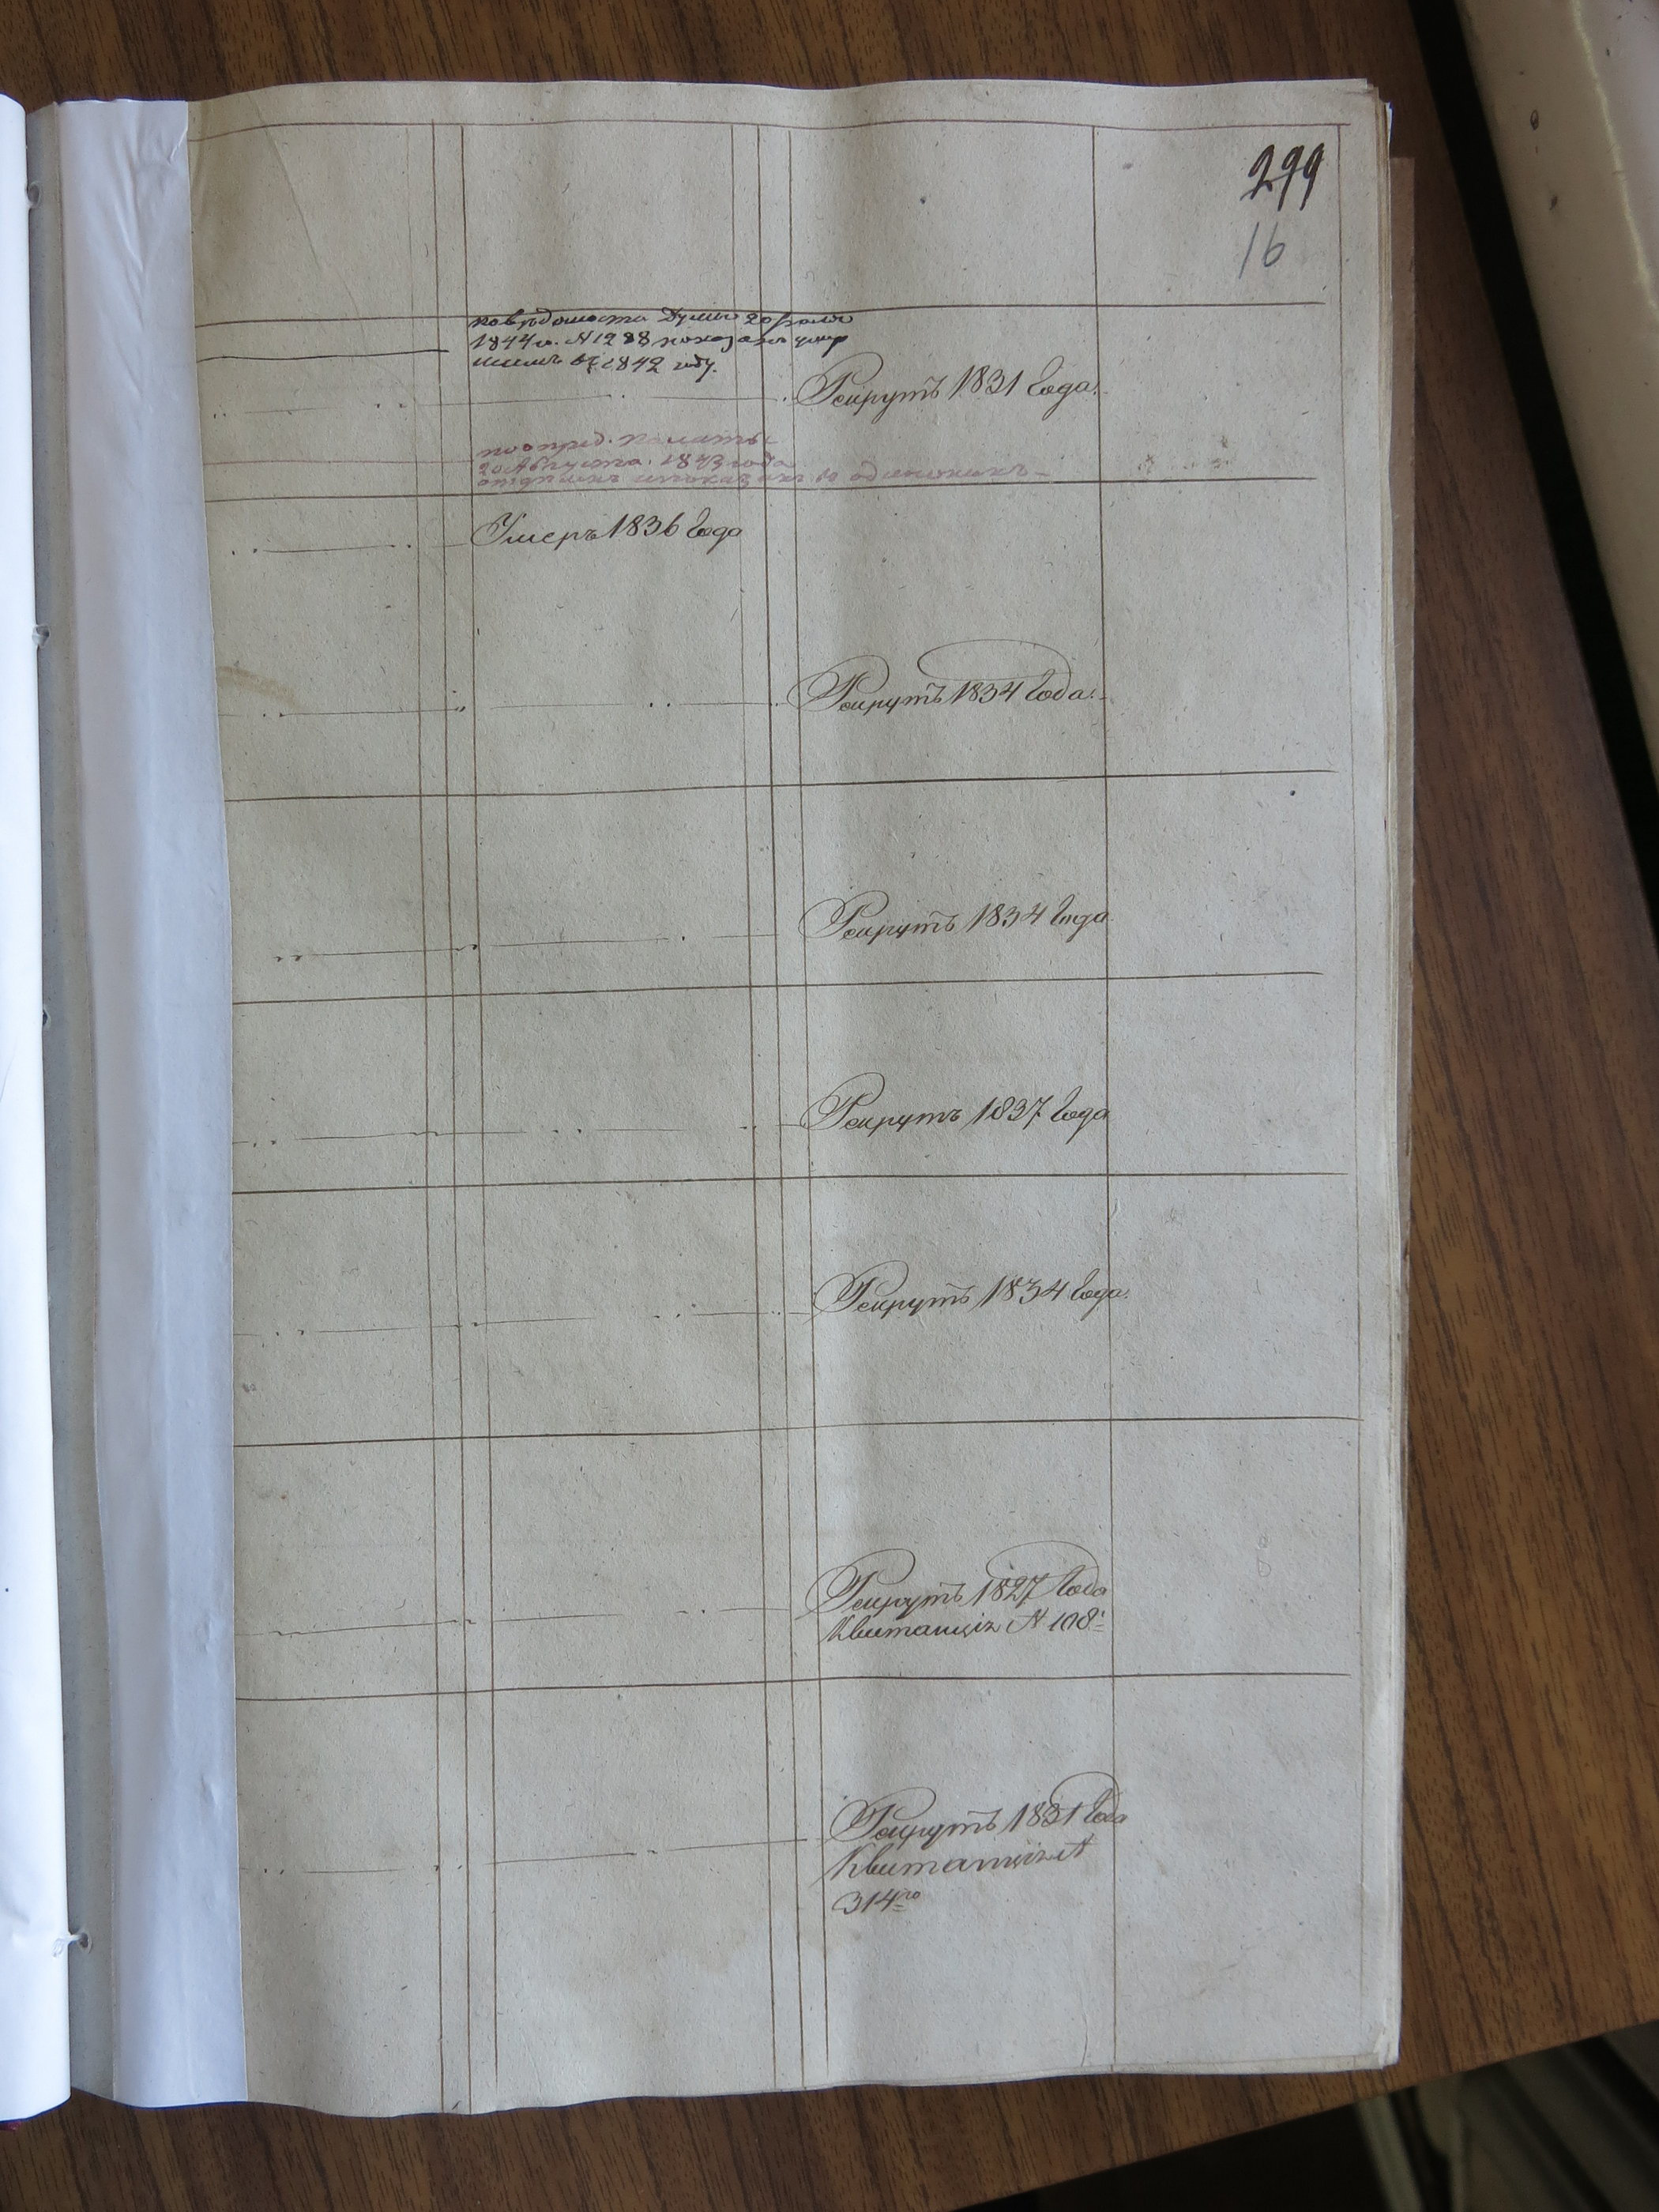 299
16
по вѣдомости Думы 20
1844 г. № 1288 показанъ умер
шимъ въ 1842 году.
Рекрутъ 1831 Года.
по опред. палаты
20 Августа 1843 года
одинокихъ
Умеръ 1836 Года
Рекрутъ 1834 Года.
Рекрутъ 1834 Года
Рекрутъ 1837 Года
Рекрутъ 1834 Года.
Рекрутъ 1827 Года
Квитанція № 108
Рекрутъ 1831 Года
Квитанція №
314го